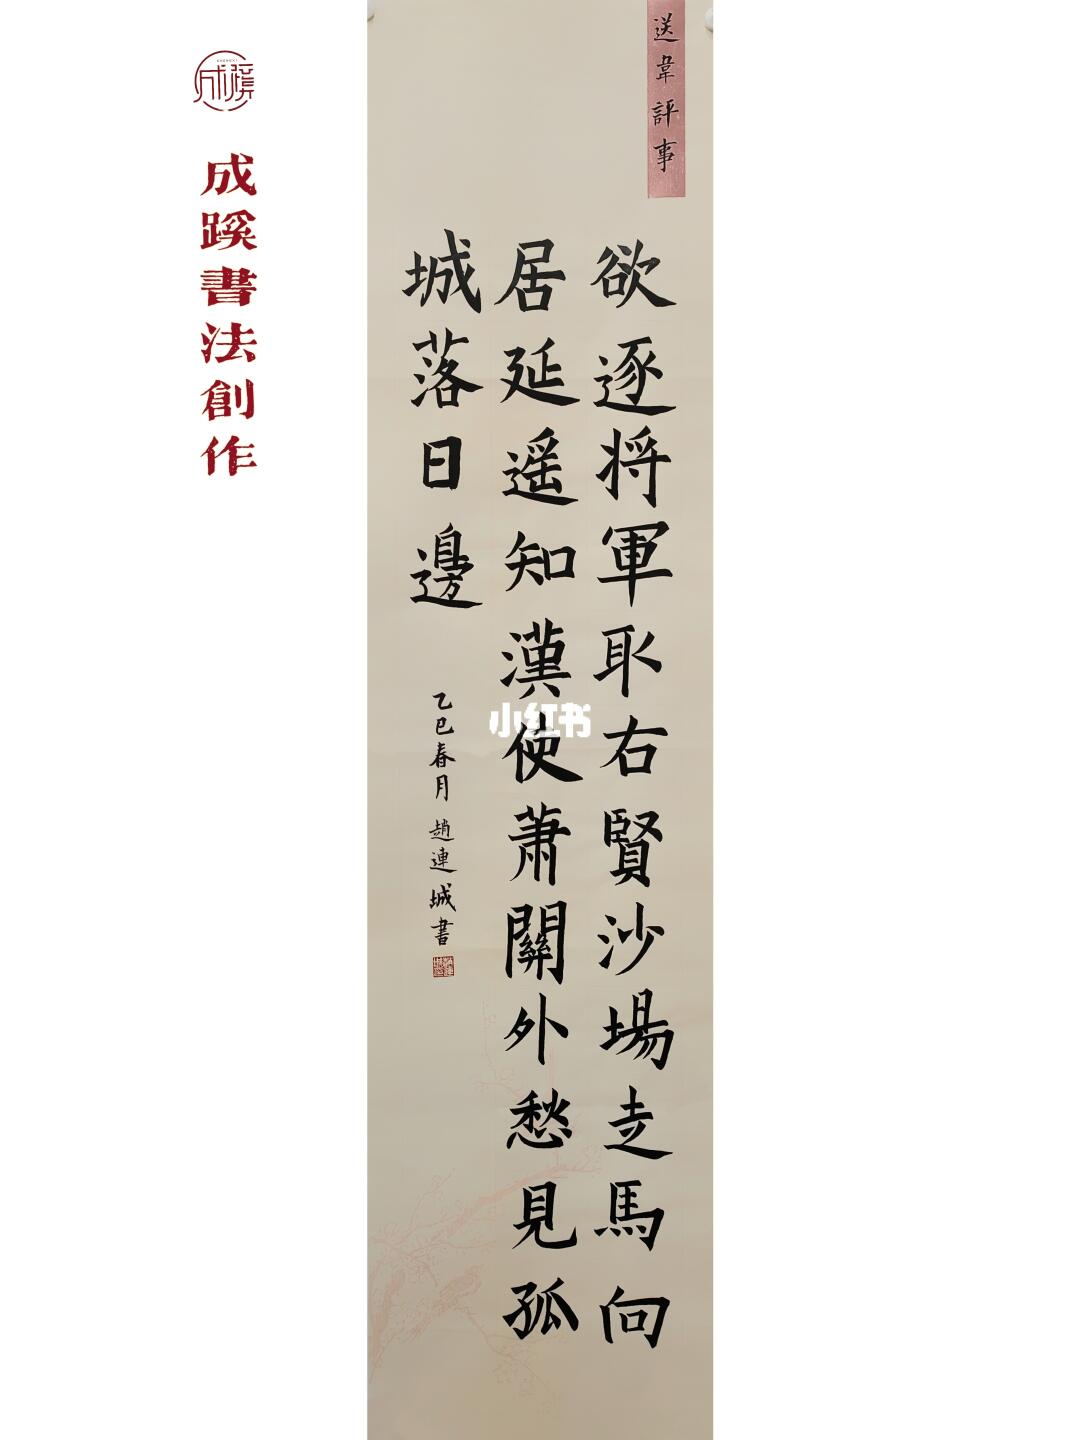 送韋評事
欲逐将軍取右賢沙場走馬向
居延遥知漢使蕭關外愁見孤
城落日邊
乙巳春月趙連城書
成蹊書法創作
小红书